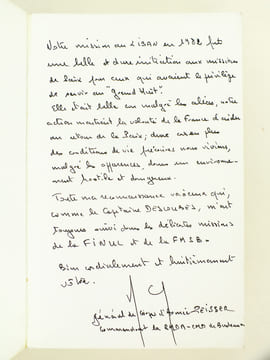 Notre mission au LIBAN en 1982 fut
une belle et dure initiation aux missions
de Paix pour ceux qui avaient le privilège
de servir au "grand Huit".
Elle était belle car malgré les aléas, notre
action montrait la volonté de la France d'aider
au retour de la Paix; dure car en plus
des conditions de vie précaires nous vivions,
malgré les apparences, dans un environne-
ment hostile et dangereux.
Toute ma reconnaissance va à ceux qui,
comme le Capitaine DESCOUBES, m'ont
toujours suivi dans les délicates missions
de la FINUL et de la FMSB.
Bien cordialement et
général de corps d'armée ZEISSER
Commandant la